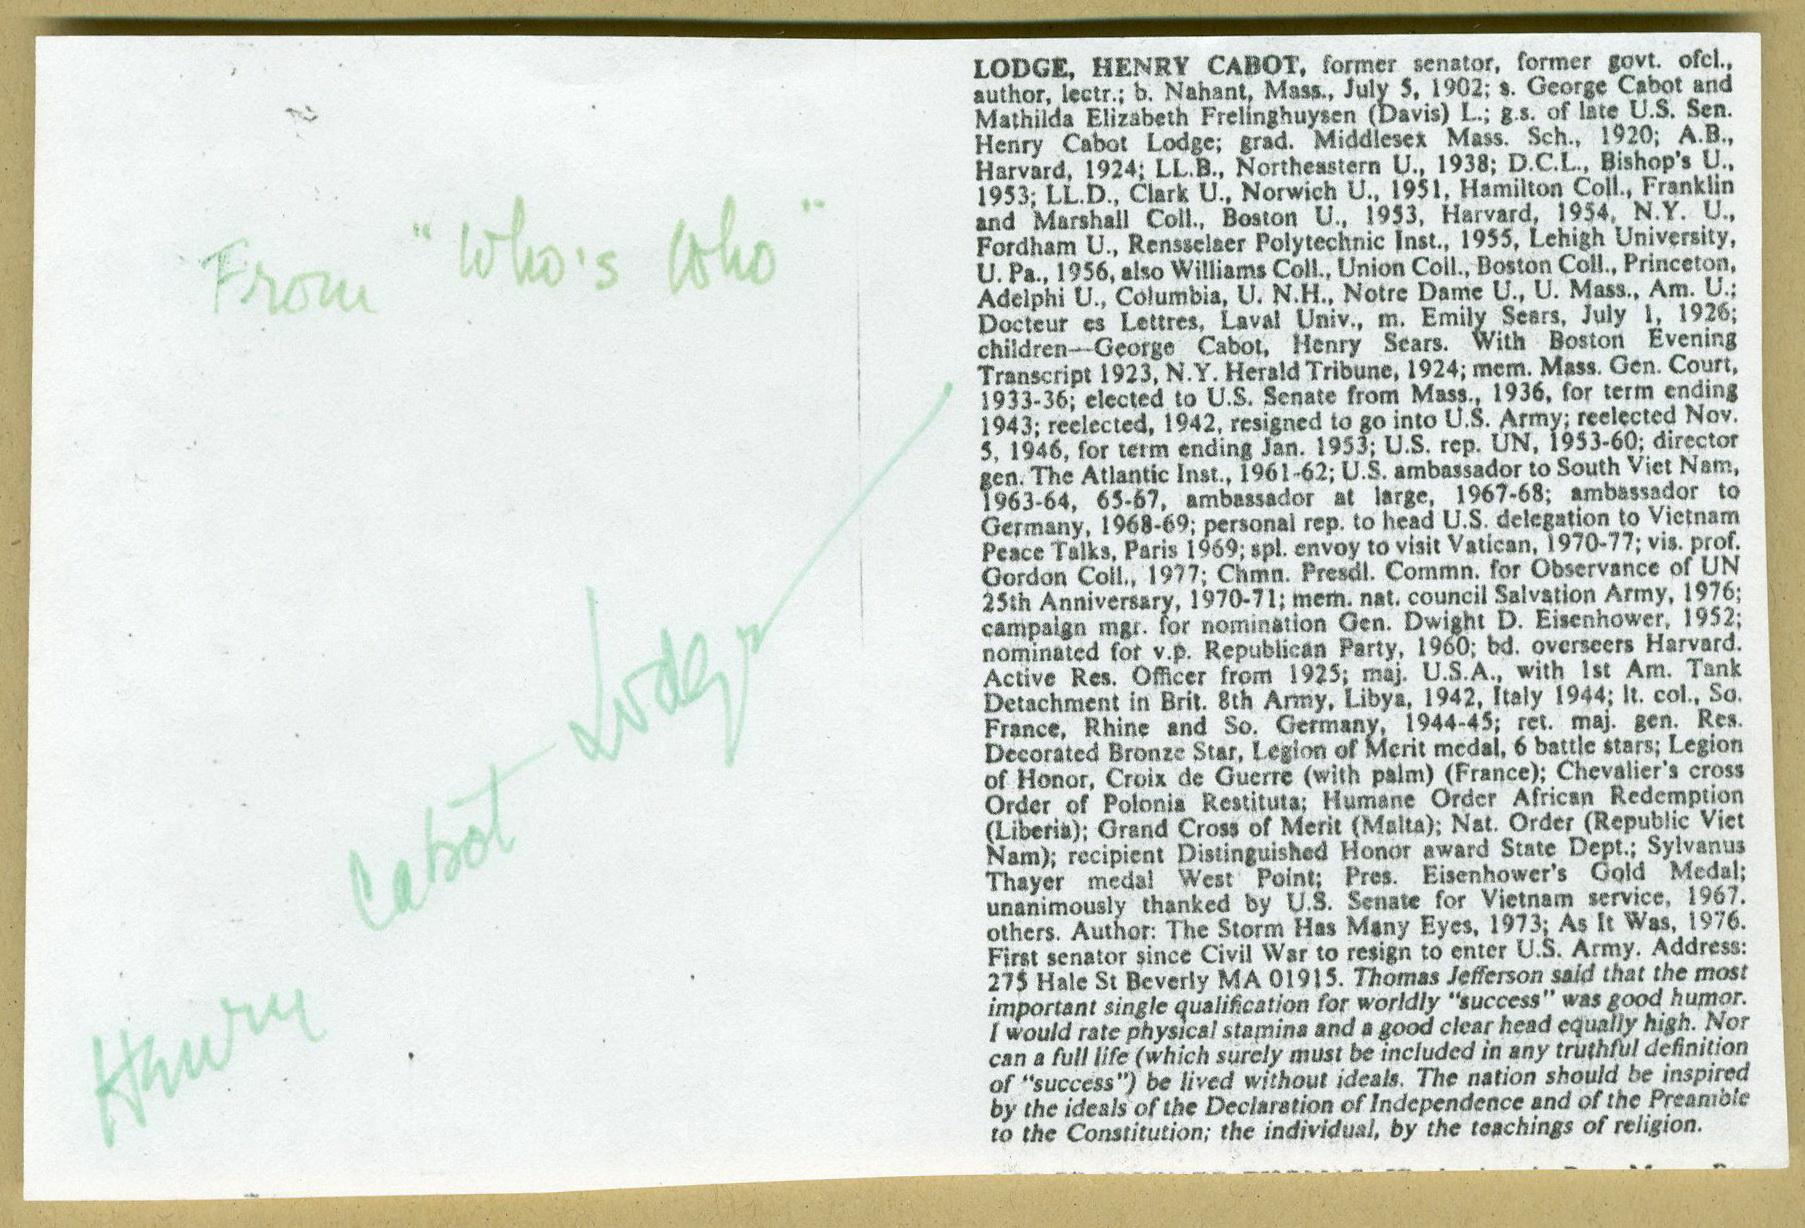 From "Who's Who"
Henry Cabot Lodge
LODGE, HENRY CABOT, former senator, former govt. ofcl.,
author, lectr.; b. Nahant, Mass., July 5, 1902; s. George Cabot and
Mathilda Elizabeth Frelinghuysen (Davis) L.; g.s. of late U.S. Sen.
Henry Cabot Lodge; grad. Middlesex Mass. Sch., 1920; A.B.,
Harvard, 1924; LL.B., Northeastern U., 1938; D.C.L., Bishop's U.,
1953; LL.D., Clark U., Norwich U., 1951, Hamilton Coll., Franklin
and Marshall Coll., Boston U., 1953, Harvard, 1954, N.Y. U.,
Fordham U., Rensselaer Polytechnic Inst., 1955, Lehigh University,
U. Pa., 1956, also Williams Coll., Union Coll., Boston Coll., Princeton,
Adelphi U., Columbia, U. N.H., Notre Dame U., U. Mass., Am. U.;
Docteur es Lettres, Laval Univ., m. Emily Sears, July 1, 1926;
children—George Cabot, Henry Sears. With Boston Evening
Transcript 1923, N.Y. Herald Tribune, 1924; mem. Mass. Gen. Court,
1933-36; elected to U.S. Senate from Mass., 1936, for term ending
1943; reelected, 1942, resigned to go into U.S. Army; reelected Nov.
5, 1946, for term ending Jan. 1953; U.S. rep. UN, 1953-60; director
gen. The Atlantic Inst., 1961-62; U.S. ambassador to South Viet Nam,
1963-64, 65-67, ambassador at large, 1967-68; ambassador to
Germany, 1968-69; personal rep. to head U.S. delegation to Vietnam
Peace Talks, Paris 1969; spl. envoy to visit Vatican, 1970-77; vis. prof.
Gordon Coll., 1977; Chmn. Presdl. Commn. for Observance of UN
25th Anniversary, 1970-71; mem. nat. council Salvation Army, 1976;
campaign mgr. for nomination Gen. Dwight D. Eisenhower, 1952;
nominated for v.p. Republican Party, 1960; bd. overseers Harvard.
Active Res. Officer from 1925; maj. U.S.A., with 1st Am. Tank
Detachment in Brit. 8th Army, Libya, 1942, Italy 1944; lt. col., So.
France, Rhine and So. Germany, 1944-45; ret. maj. gen. Res.
Decorated Bronze Star, Legion of Merit medal, 6 battle stars; Legion
of Honor, Croix de Guerre (with palm) (France); Chevalier's cross
Order of Polonia Restituta; Humane Order African Redemption
(Liberia); Grand Cross of Merit (Malta); Nat. Order (Republic Viet
Nam); recipient Distinguished Honor award State Dept.; Sylvanus
Thayer medal West Point; Pres. Eisenhower's Gold Medal;
unanimously thanked by U.S. Senate for Vietnam service, 1967.
others. Author: The Storm Has Many Eyes, 1973; As It Was, 1976.
First senator since Civil War to resign to enter U.S. Army. Address:
275 Hale St Beverly MA 01915. Thomas Jefferson said that the most
important single qualification for worldly "success" was good humor.
I would rate physical stamina and a good clear head equally high. Nor
can a full life (which surely must be included in any truthful definition
of "success") be lived without ideals. The nation should be inspired
by the ideals of the Declaration of Independence and of the Preamble
to the Constitution; the individual, by the teachings of religion.